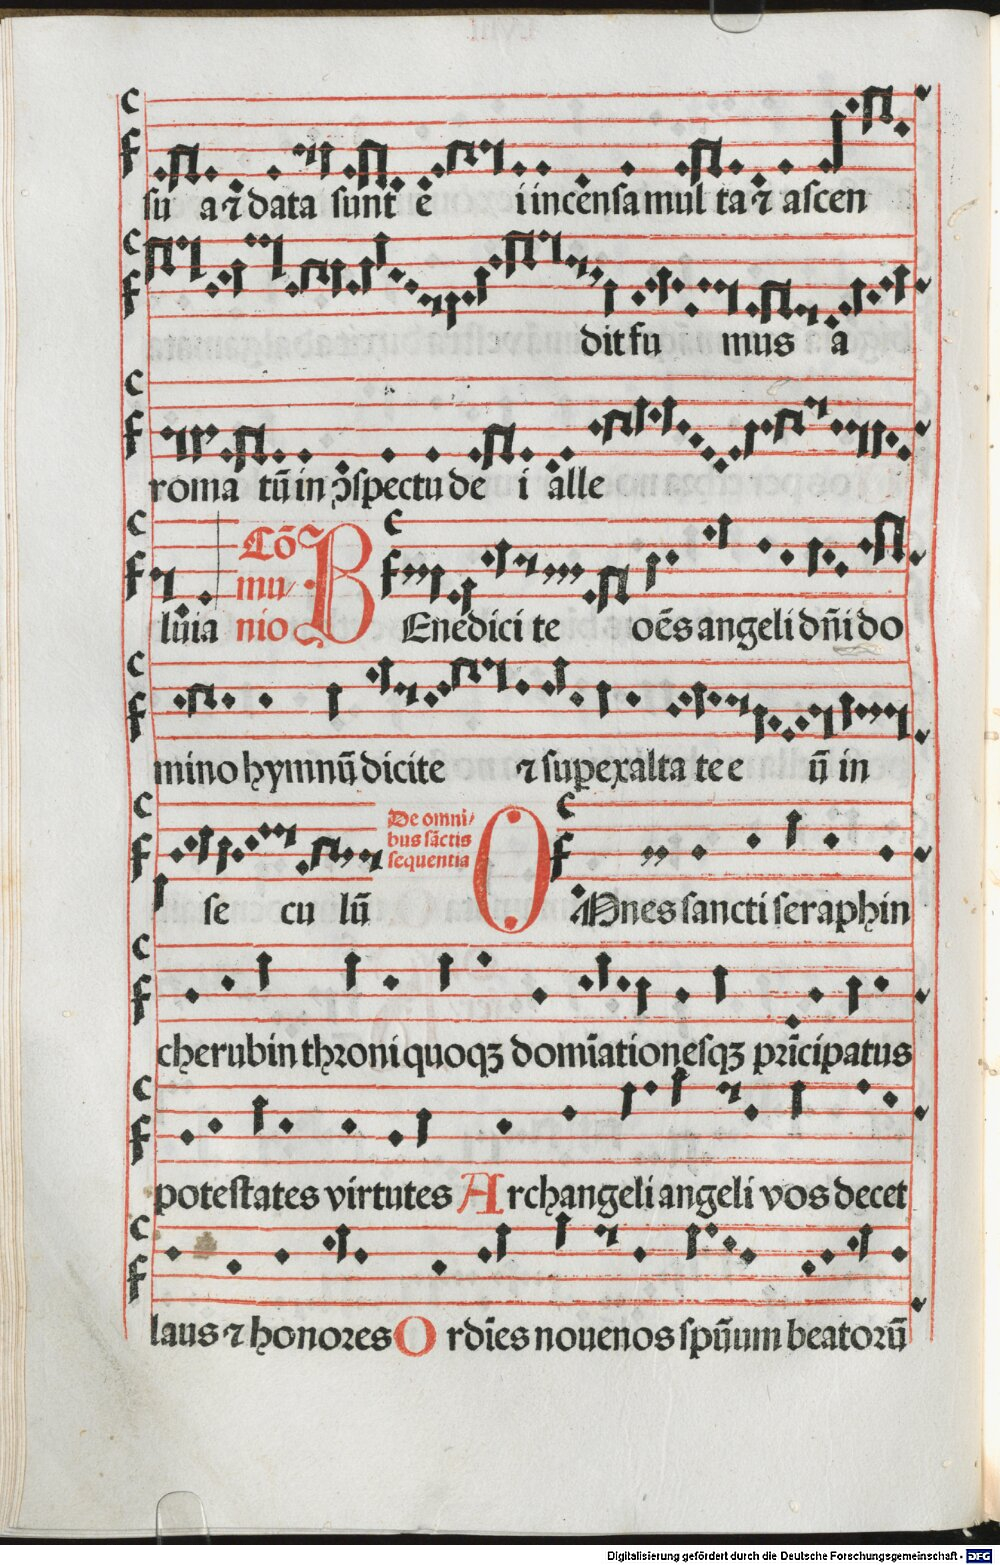 sū a⁊ data sunt ē i incēnsa mul ta ⁊ ascen
dit fu mus a
roma tū in ꝯspectu de i alle
Cō
mu
nio
luīa BEnedici te oēs angeli dn̄i do
mino hymnū dicite ⁊ supexalta te e ū in
De omni
bus sāctis
sequentia
se cu lū OMnes sancti seraphin
cherubin throni quoqꝫ domīationesqꝫ prīcipatus
potestates virtutes Archangeli angeli vos decet
laus ⁊ honores Ordīes nouenos spūum beatorū
Digitalisierung gefördert durch die Deutsche Forschungsgemeinschaft - DFG